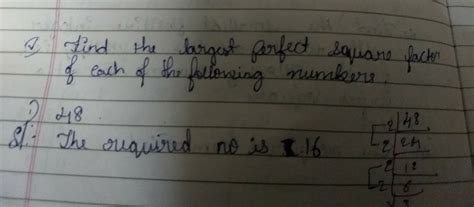 1) Find the largest perfect square factor
of each of the following numbers.
i) 48
Sol: The required no is 16
2 48
2 24
2 12
2 6
3